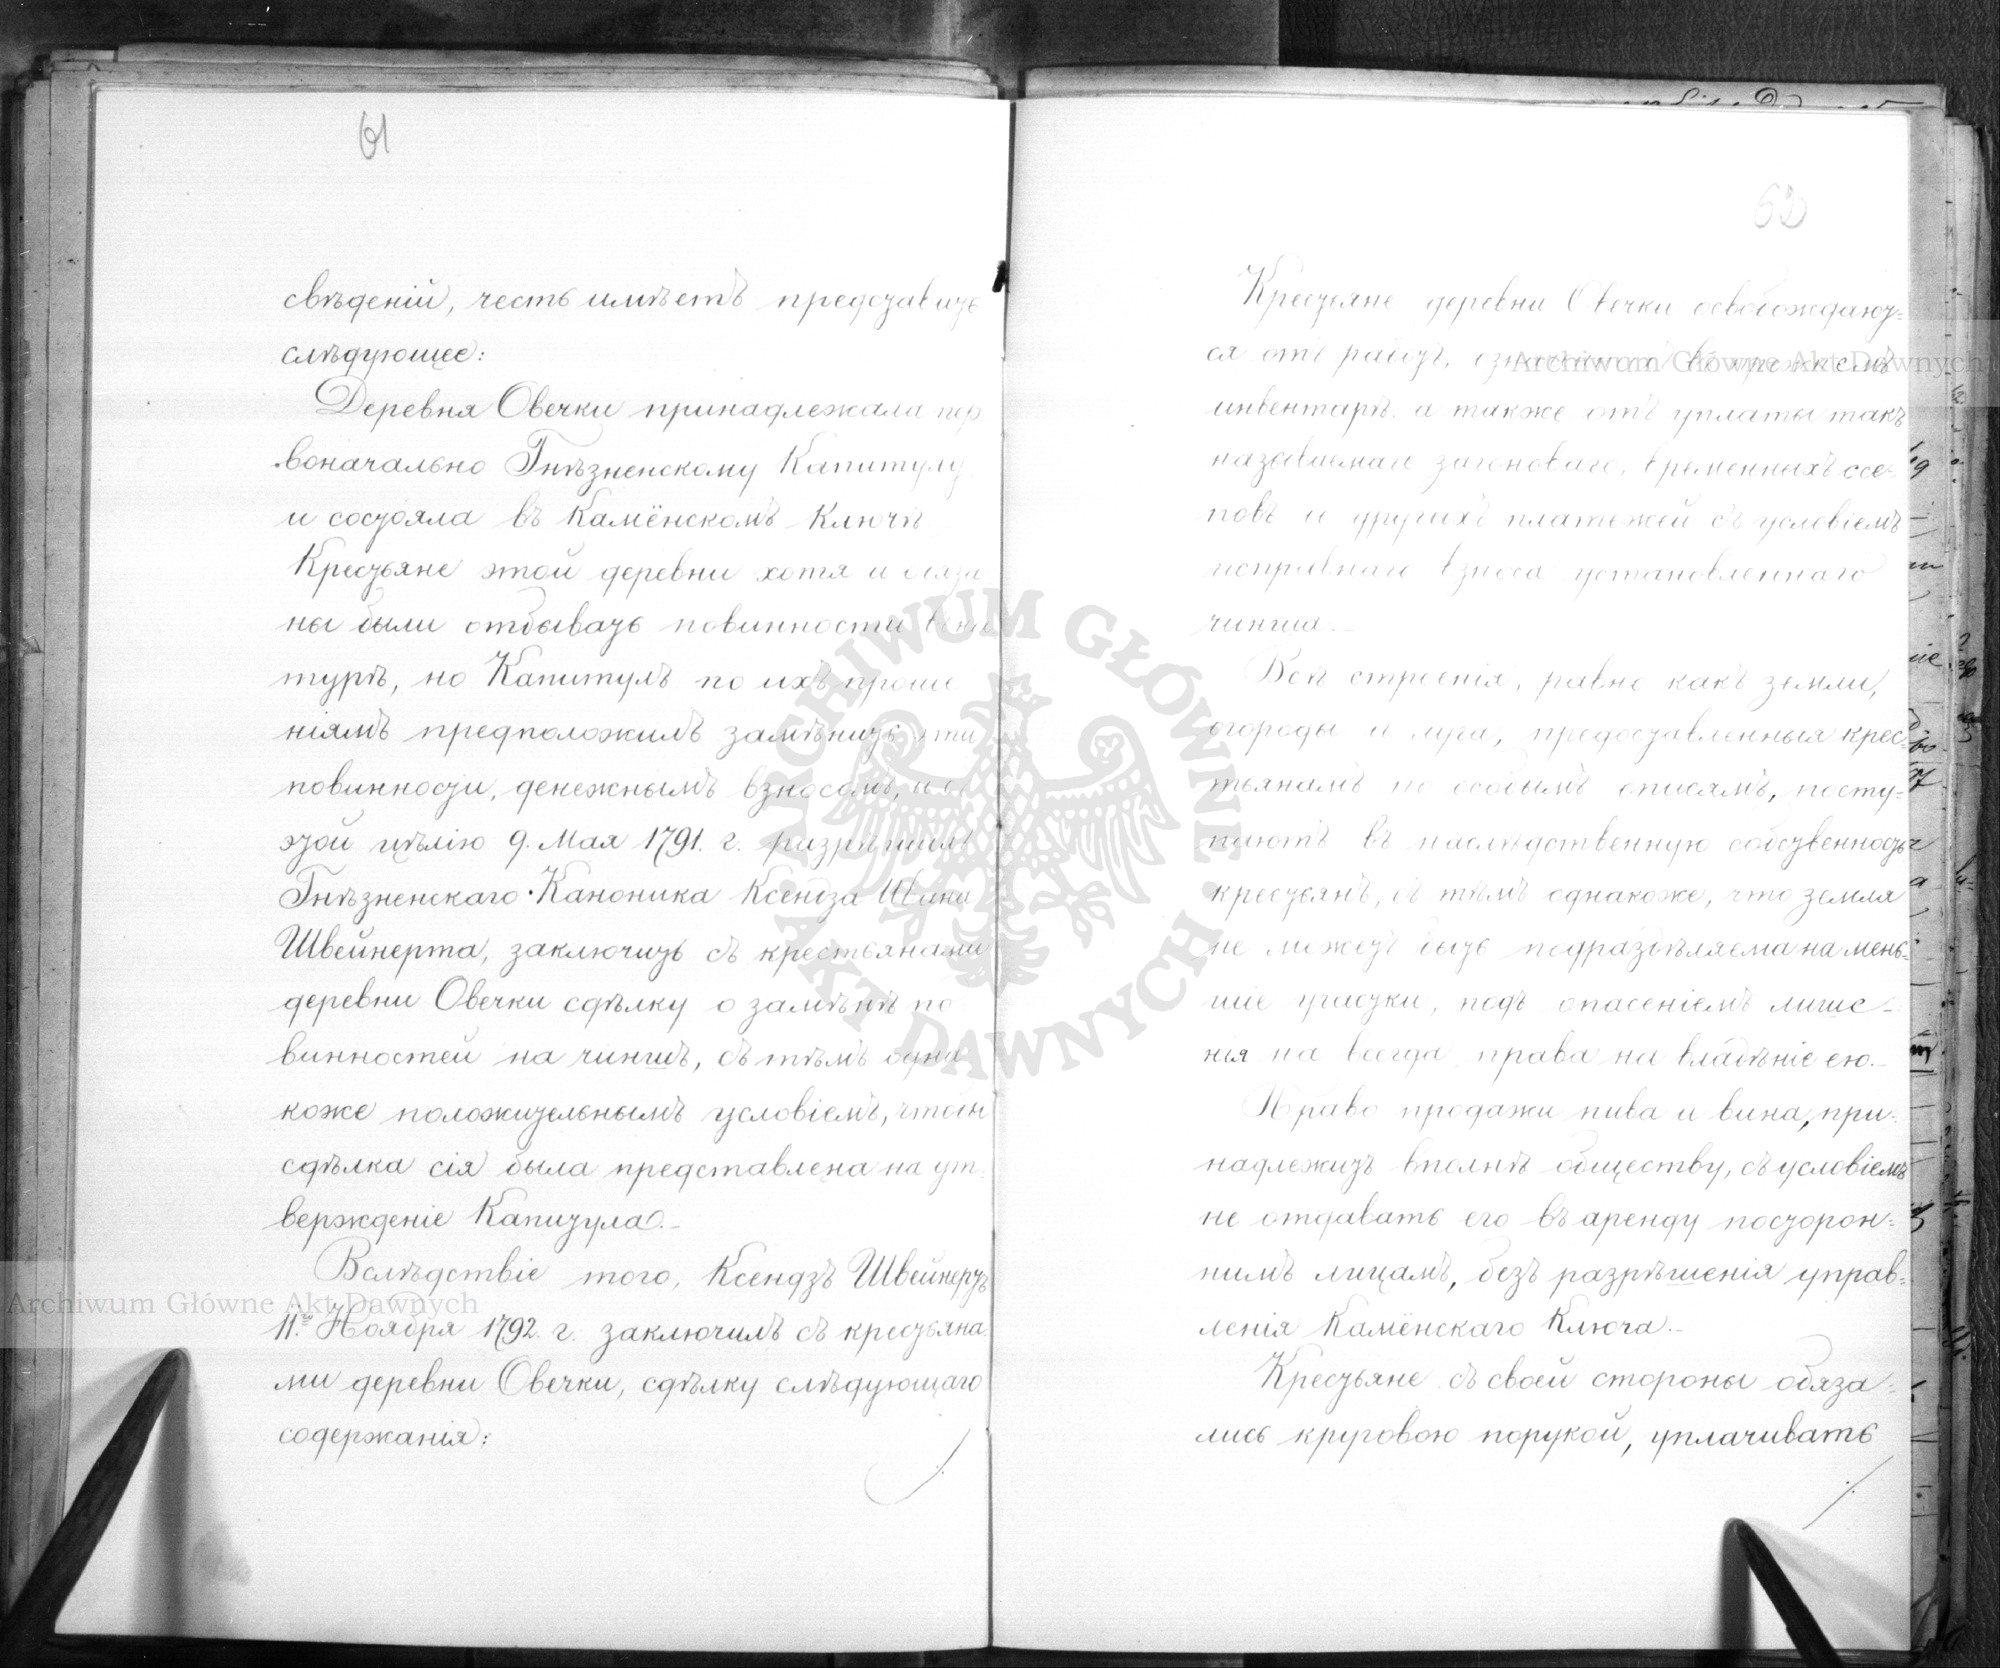 61
свѣденій, честь имѣетъ представить
слѣдующее:
Деревня Овечки принадлежала пер
воначально Гнѣзненскому Капитулу
и состояла въ Камёнскомъ Ключѣ
Крестьяне этой деревни хотя и обяза
ны были отбывать повинности въ на
турѣ, но Капитулъ по ихъ проше
ніямъ предположилъ замѣнить эти
повинности, денежнымъ взносомъ, и съ
этой цѣлію 9. Мая 1791. г. разрѣшилъ
Гнѣзненскаго Каноника Ксендза Ивана
Швейнерта, заключить съ крестьянами
деревни Овечки сдѣлку о замѣнѣ по
винностей на чиншъ, съ тѣмъ одна
коже положительнымъ условіемъ, чтобы
сдѣлка сія была представлена на ут.
вержденіе Капитула.-
Вслѣдствіе того, Ксендзъ Швейнертъ
11.го Ноября 1792. г. заключилъ съ крестьяна
ми деревни Овечки, сдѣлку слѣдующаго
содержанія:
62
Крестьяне деревни Овечки освобождают-
ся отъ работъ, въ прежнемъ
инвентарѣ, а также отъ уплаты такъ
называемаго временныхъ осе-
повъ и другихъ платежей съ условіемъ
исправнаго взноса установленнаго
чинша.-
Всѣ строенія, равно какъ земли,
огороды и луга, предоставленныя крес-
тьянамъ по особымъ описямъ, посту-
паютъ въ наслѣдственную собственность
крестьянъ, съ тѣмъ однакоже, что земля
не можетъ быть подраздѣляема на мень-
шіе участки, подъ опасеніемъ лише-
нія на всегда права на владѣніе ею.-
Право продажи пива и вина, при-
надлежитъ вполнѣ обществу, съ условіемъ
не отдавать его въ аренду посторон-
нимъ лицамъ, безъ разрѣшенія управ-
ленія Камёнскаго Ключа.-
Крестьяне съ своей стороны обяза-
лись круговою порукой, уплачивать
Archiwum Główne Akt Dawnych
Archiwum Główne Akt Dawnych
ARCHIWUM GŁÓWNE AKT DAWNYCH